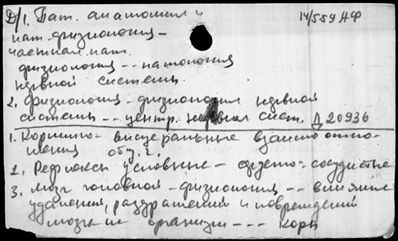 Д/1, Пат. анатомия и 14/559 АФ
пат. физиология -
частная пат.
физиология -- патология
нервной системы.
2. Физиология - физиология нервной
системы -- центр. нервная сист. Д 20936
1. Кортико - висцеральные взаимоотно-
шения общ.
2. Рефлексы условные - сердечно-сосудистые
3. Мозг головной - физиология -- влияние
удаления, раздражения и повреждений
мозга на организм --- коры